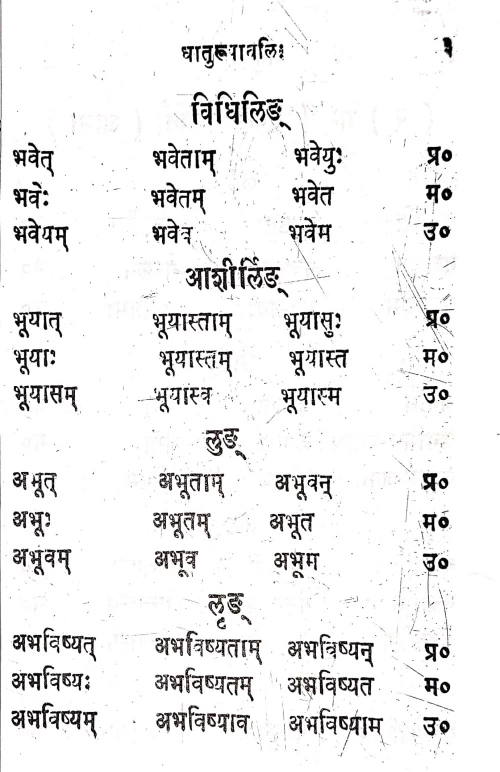 धातुरूपावलिः ३
विधिलिङ्
भवेत् भवेताम् भवेयुः प्र०
भवेः भवेतम् भवेत म०
भवेयम् भवेव भवेम उ०
आशीर्लिङ्
भूयात् भूयास्ताम् भूयासुः प्र०
भूयाः भूयास्तम् भूयास्त म०
भूयासम् भूयास्व भूयास्म उ०
लुङ्
अभूत् अभूताम् अभूवन् प्र०
अभूः अभूतम् अभूत म०
अभूवम् अभूव अभूम उ०
लृङ्
अभविष्यत् अभविष्यताम् अभविष्यन् प्र०
अभविष्यः अभविष्यतम् अभविष्यत म०
अभविष्यम् अभविष्याव अभविष्याम उ०